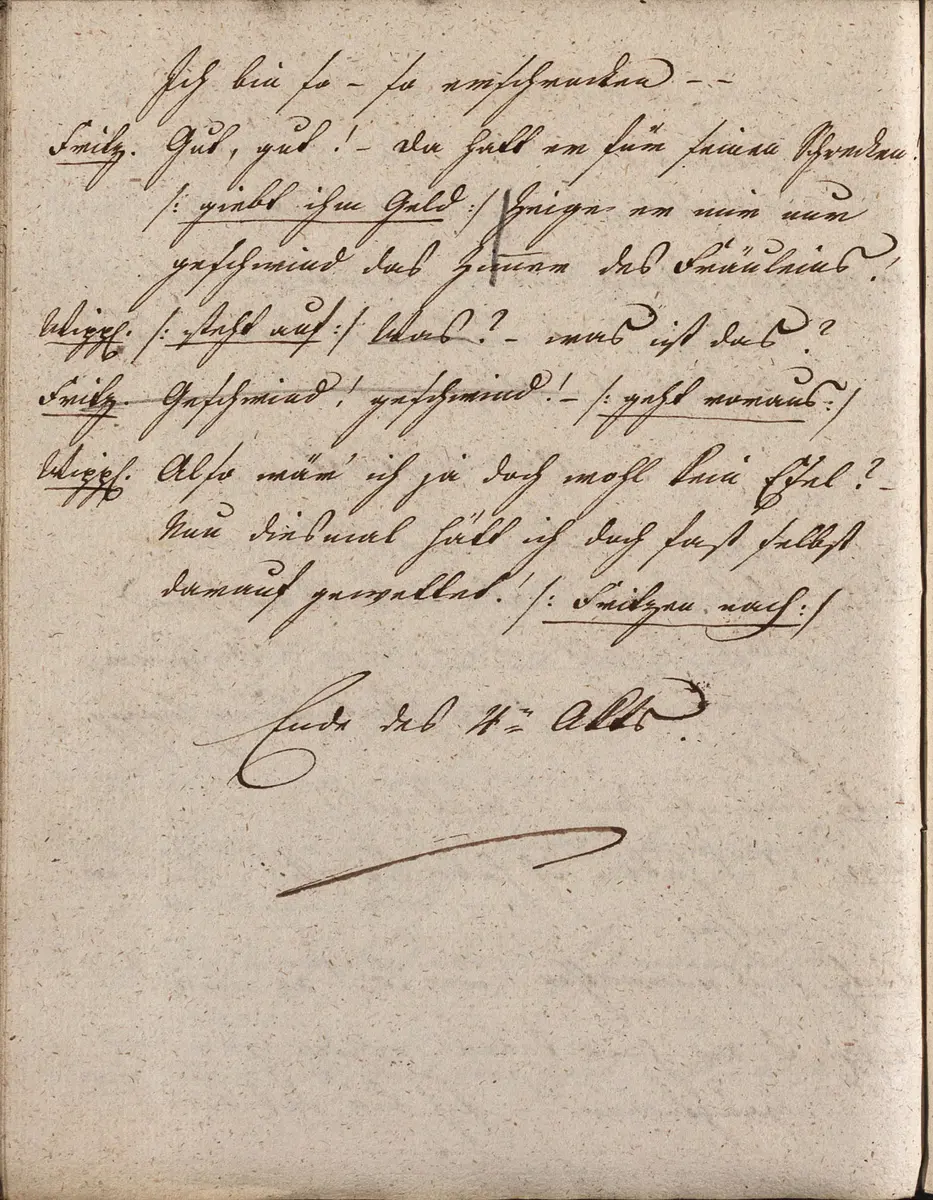 Ich bin so – so erschrocken – –
Fritz. Gut, gut! – Da hatt er für seinen Schrecken!
/: giebt ihm Geld :/ Zeige er mir nur
geschwind das Zimmer des Fräuleins!
Wippl. /: steht auf :/ Was? – was ist das?
Fritz. Geschwind! geschwind! – /: geht voraus :/
Wippl. Also wär' ich ja doch wohl kein Esel? –
Nun diesmal hätt ich doch fast selbst
darauf gewettet! /: Fritzen nach :/
Ende des 4ten Akts.